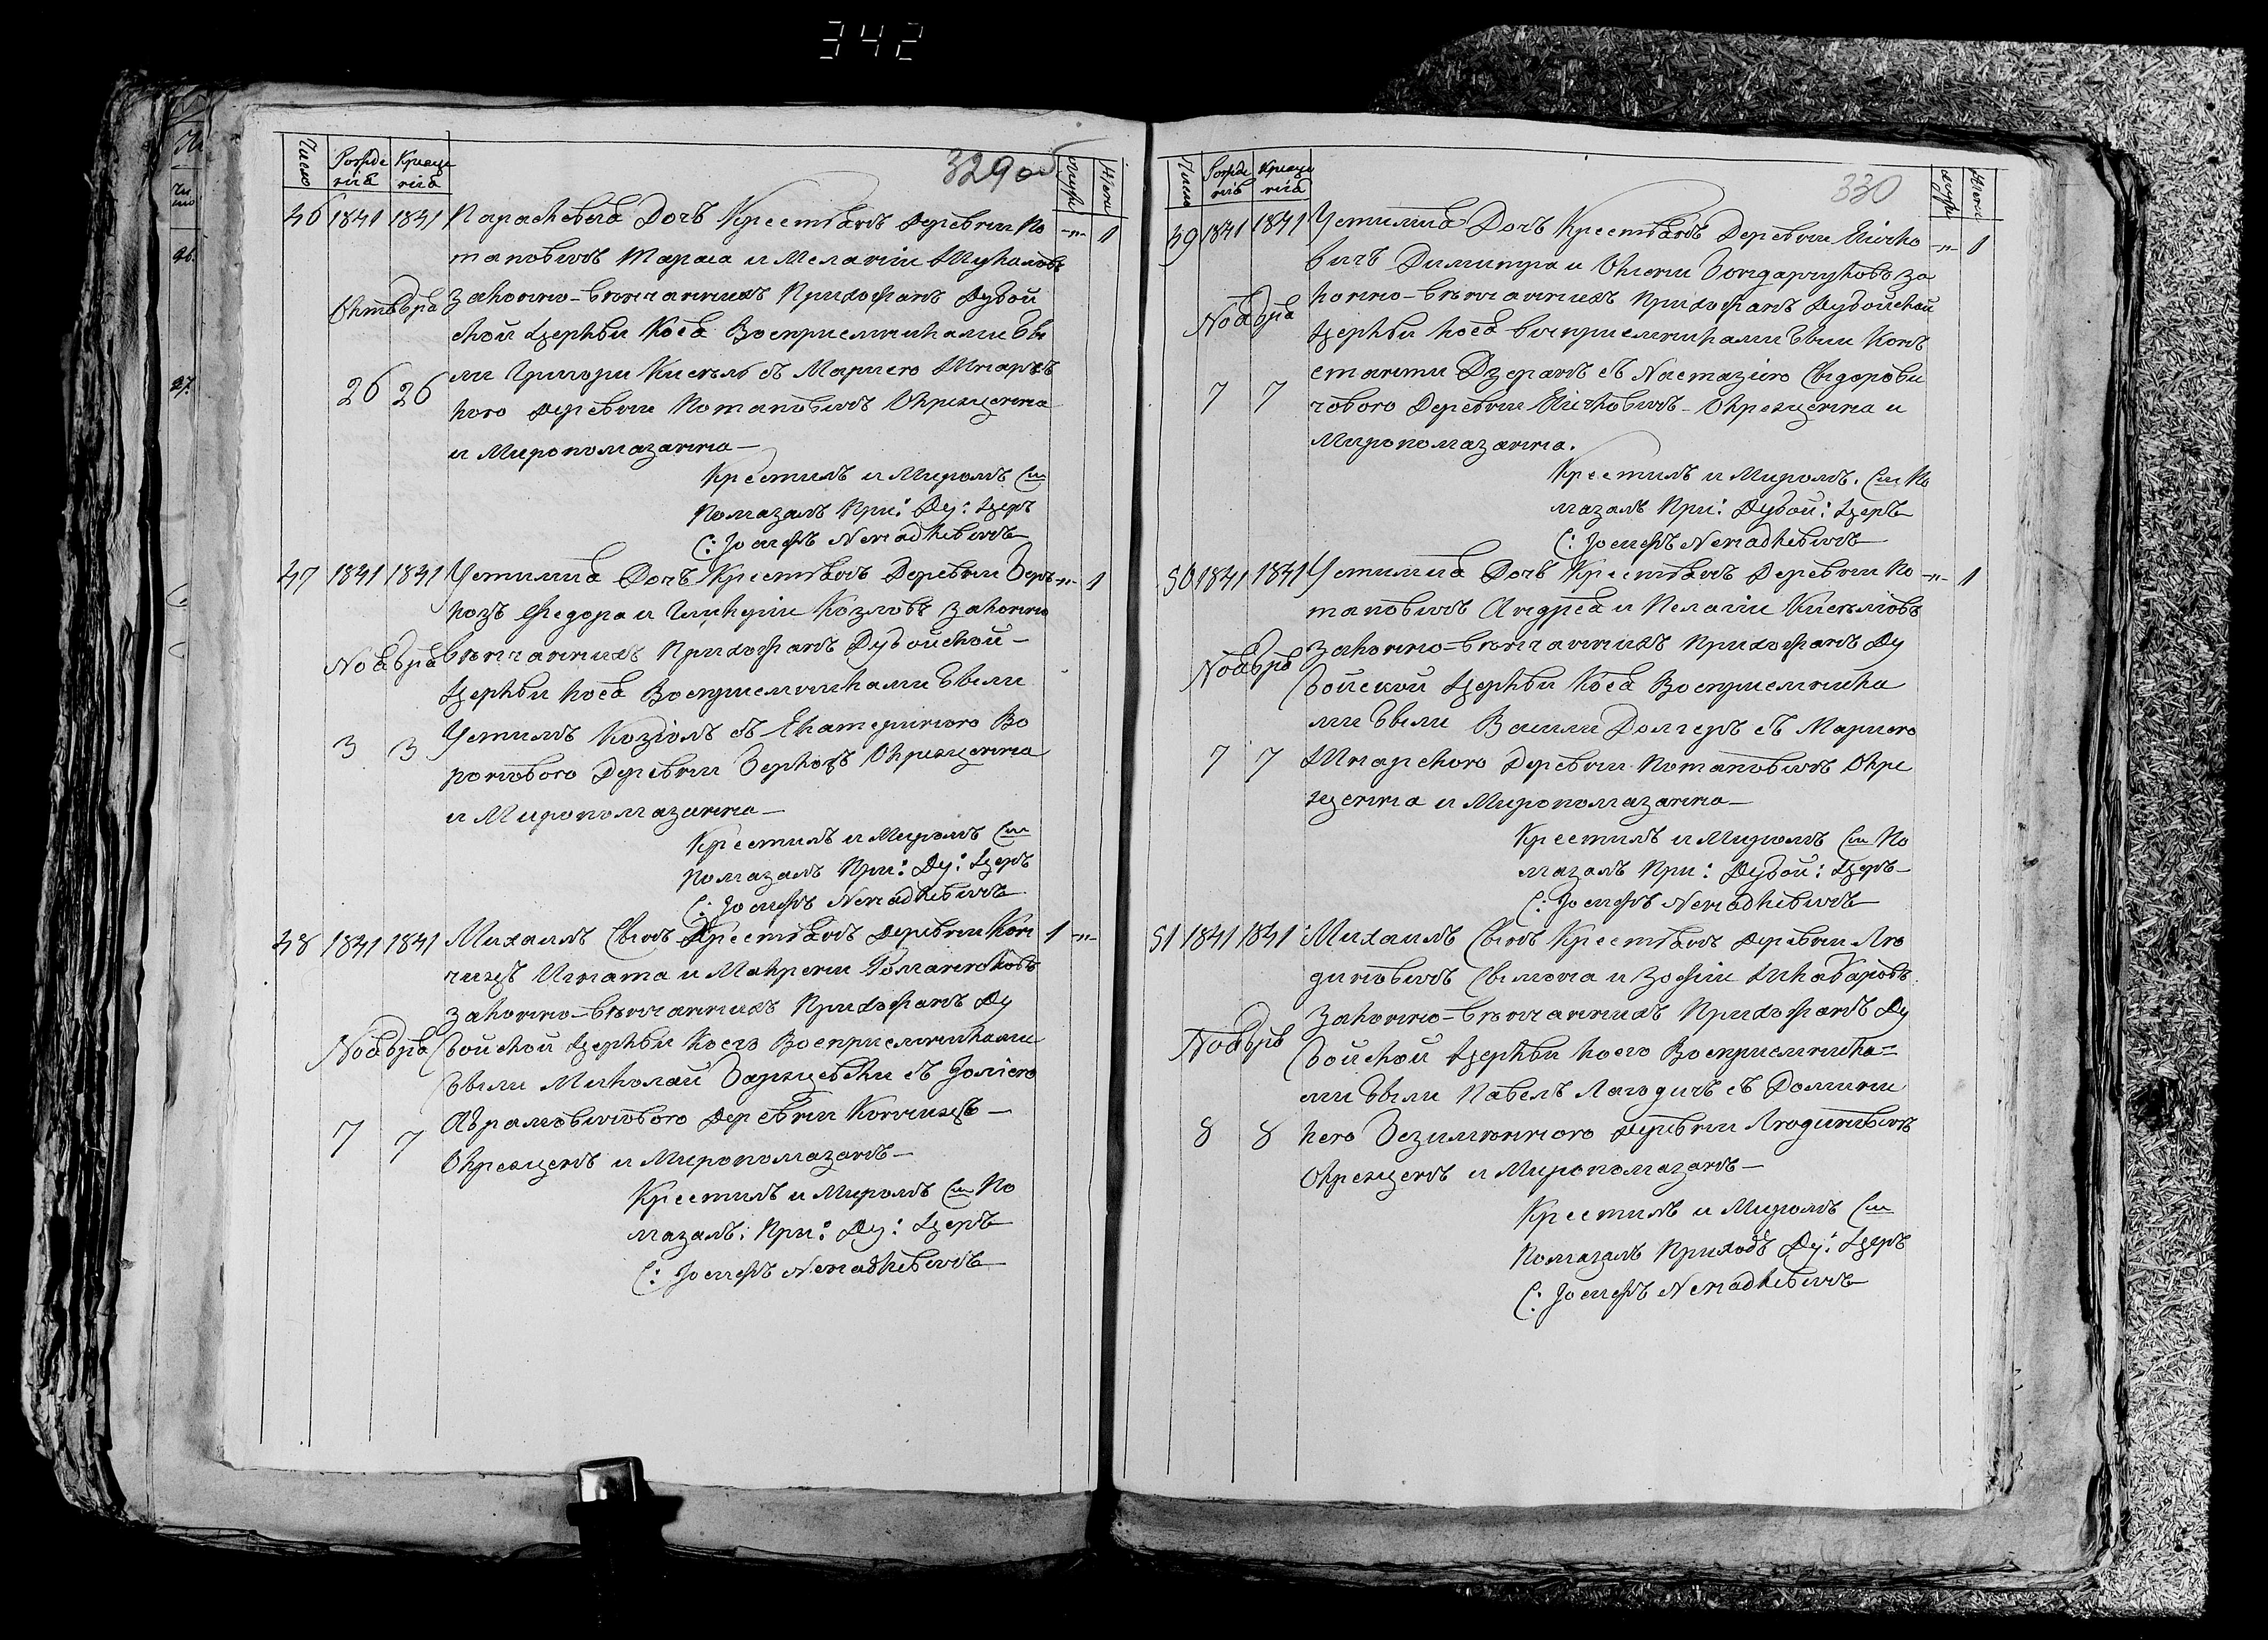 342
329об
Число Рожде нія Креще нія Мужс Женс
46 1841 1841 Параскевія Дочъ Крестьянъ деревни По „ 1
таповичъ Тараса и Меланіи
Октября Законно-вѣнчанныхъ Прихожанъ Дубой
ской Церкви Коея Воспріемниками бы
26 26 ли Григори Кисѣль съ Маріею
кого деревни Потаповичъ Окрещенна
и Миропомазанна
Крестилъ и Миромъ Св
Помазалъ При: Ду: Церк
С: Іосифъ Ненадкевичъ
47 1841 1841 Устинія Дочъ Крестьянъ Деревни „ 1
Федора и Гликеріи Козловъ Законно
Ноября вѣнчанныхъ Прихожанъ Дубойской
Церкви Коея Воспріемниками были
Устимъ Козіолъ съ Екатериною Во
3 3 Деревни Окрещенна
и Миропомазанна
Крестилъ и Миромъ Св
Помазалъ При: Ду: Церк
С: Іосифъ Ненадкевичъ
48 1841 1841 Михаилъ Сынъ Крестьянъ деревни Кон 1 „
чицъ Игната и Макрени Романюковъ
Законно-вѣнчанныхъ Прихожанъ Ду
Ноября бойской Церкви Коего Воспріемниками
были Миколай съ Юліею
7 7 Абрамовичовою Деревни Кончицъ
Окрещенъ и Миропомазанъ
Крестилъ и Миромъ Св По
мазалъ: При: Ду: Церк
С: Іосифъ Ненадкевичъ
330
Число Рожде нія Креще нія Мужс Женс
39 1841 1841 Устинія Дочъ Крестьянъ Деревни Мичко „ 1
вичъ Димитра и Оксени Бондарчуковъ за
Ноября конно-вѣнчанныхъ Прихожанъ Дубойской
Церкви Коея воспріемниками были Кон
7 7 станти съ Настазіею Сидорови
човою Деревни Мичковичъ Окрещенна и
Миропомазанна.
Крестилъ и Миромъ. Св По
мазалъ При: Дубой: Церк
С: Іосифъ Ненадкевичъ
50 1841 1841 Устинія Дочъ Крестьянъ Деревни По „ 1
таповичъ Андрея и Пелагіи Кисѣлювъ
Законно-вѣнчанныхъ Прихожанъ Ду
Ноября бойской Церкви Коея Воспріемника
ми были Васили Долгеръ съ Маріею
7 7 Деревни Потаповичъ Окре
щенна и Миропомазанна
Крестилъ и Миромъ Св По
мазалъ При: Дубой: Церк
С: Іосифъ Ненадкевичъ
51 1841 1841 Михаилъ Сынъ Крестьянъ Деревни Лю
диновичъ Сымона и Зофіи Шкабаровъ
Законно-вѣнчанныхъ Прихожанъ Ду
Ноября бойской Церкви коего Воспріемника=
ми были Павелъ Лагодичъ съ Домини
8 8 кею деревни Людиновичъ
Окрещенъ и Миропомазанъ
Крестилъ и Миромъ Св
Помазалъ Приход Ду: Церк
С: Іосифъ Ненадкевичъ